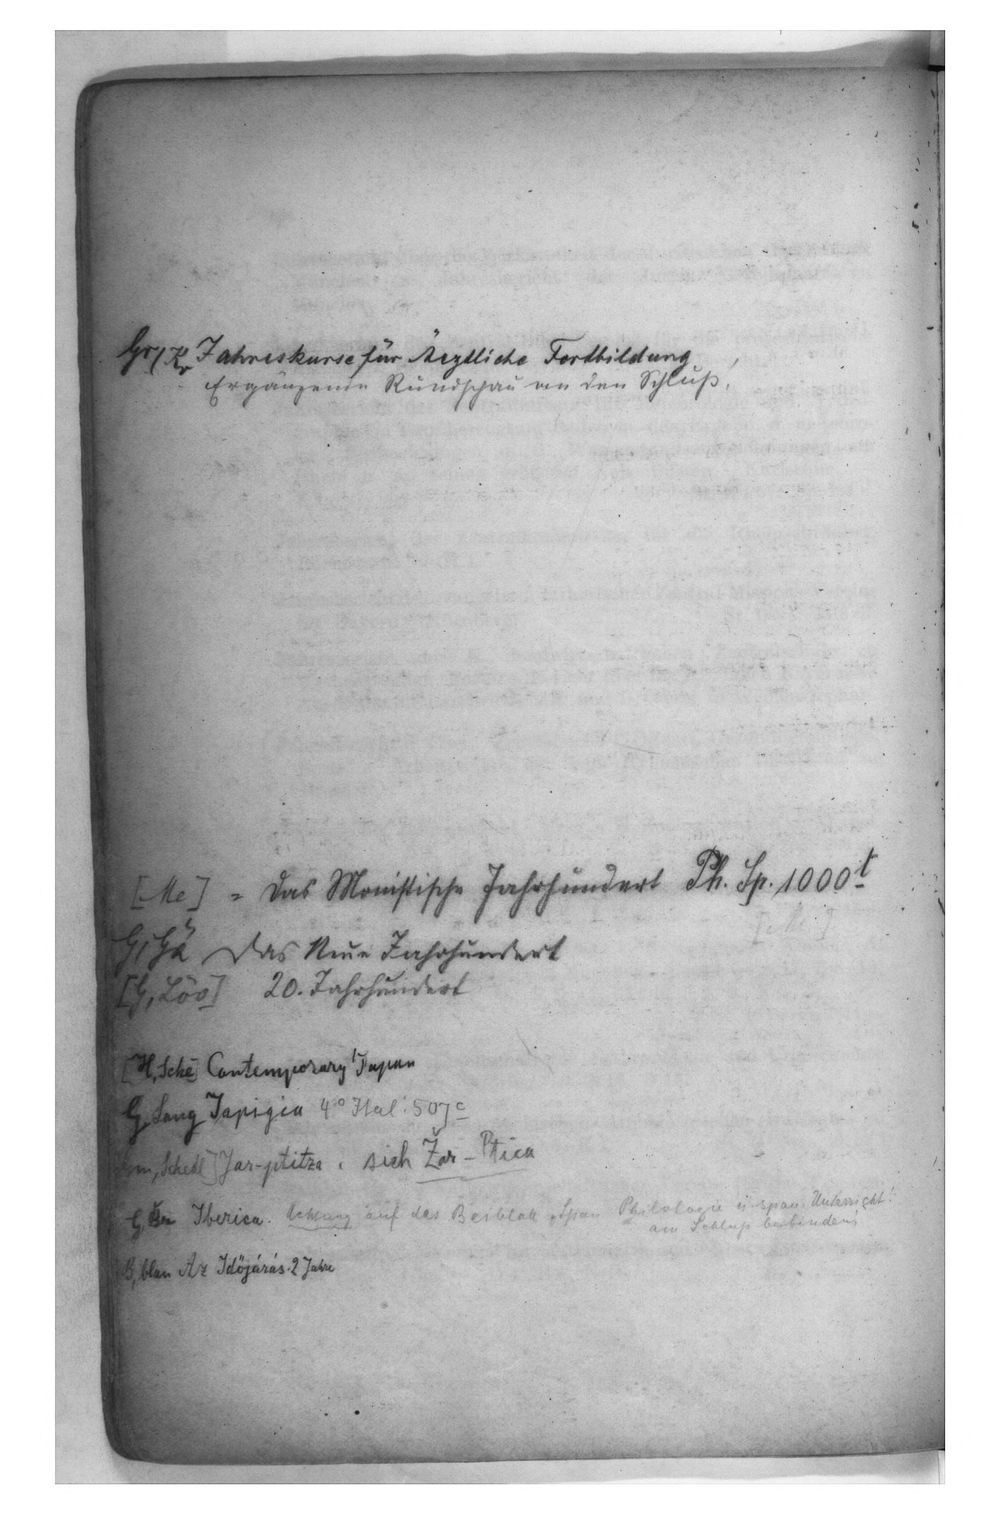 Gr/Kr Jahreskurse für Ärztliche Fortbildung
Ergänzende Rundschau an den Schluß!
[Me] = Das Monistische Jahrhundert Ph. Sp. 1000t
[Me]
G, Gä Das Neue Jahrhundert
[G, Löv] 20. Jahrhundert
[H, Sche] Contemporary Japan
G Lang Japigia 4° Ital. 507c
Schedl] Jar-ptitza. sieh Žar-Ptica
G, Iberica. Achtung auf das Beiblatt „Span Philologie u. span. Unterricht!
am Schluss beibinden!
B, blau Az Időjárás. 2 Jahre